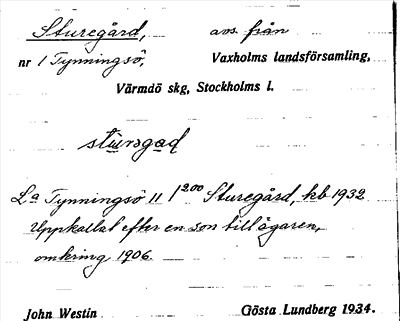 Sturegård, avs. från
nr 1 Tynningsö, Vaxholms landsförsamling,
Värmdö skg, Stockholms l.
stùrəgɑd
La Tynningsö 11 1300 Sturegård, kb 1932
Uppkallat efter en son till ägaren,
omkring 1906.
John Westin Gösta Lundberg 1934.